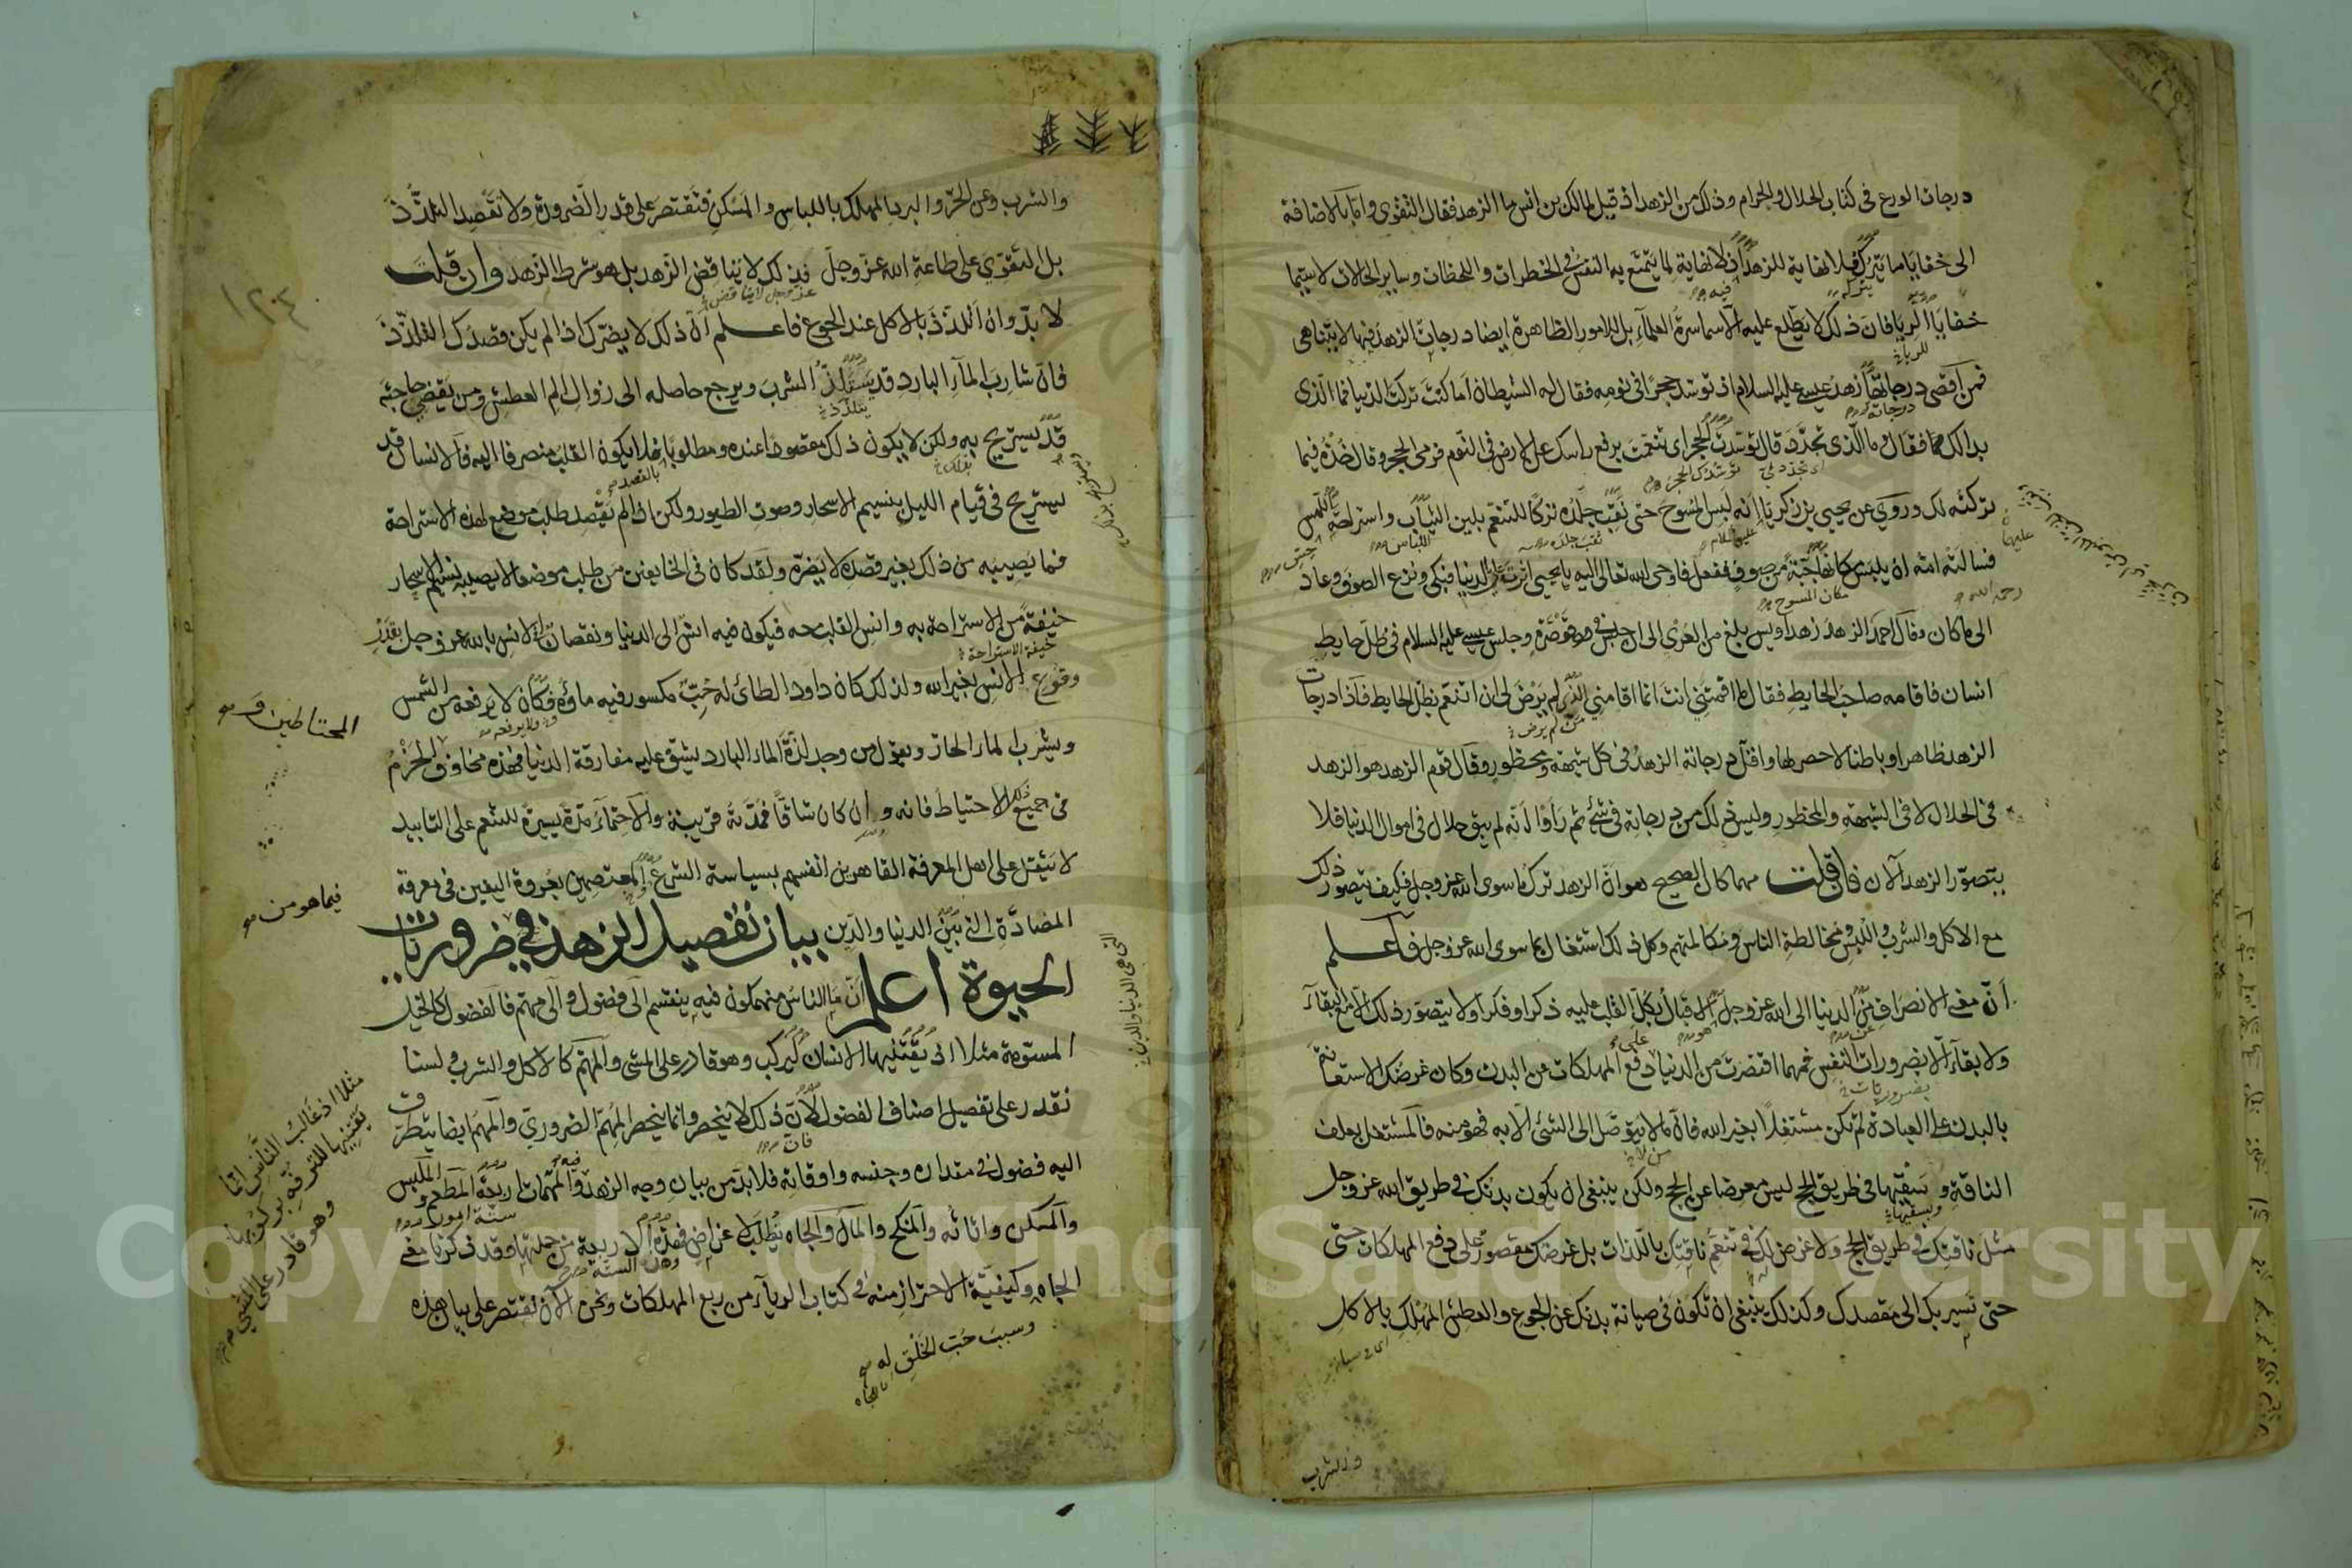 درجات الورع في كتاب الحلال والحرام وذلك من الزهد اذ قيل لمالك بن انس ما الزهد فقال التقوى واما بالاضافة
الى خفايا ما يتركه فلا نهاية للزهد اذ لا نهاية لما يتمتع به النفس في الخطرات واللحظات وساير الحالات لا سيما
خفايا الريا فان ذلك لا يطلع عليه الا سماسرة العلماء بل الامور الظاهرة ايضا درجات الزهد فيها لا يتناهى
فمن اقصى درجاته زهد عيسى عليه السلام اذ توسد حجرا في نومه فقال له الشيطان اما كنت تركت الدنيا فما الذى
بدا لك فقال وما الذى تجدد قال توسدك الحجر اى تنعمت برفع راسك على الارض في النوم فرمى الحجر وقال خذه فيما
تركته لك وروي عن يحيى بن زكريا انه لبس المسوح حتى نقب جلده تركا للتنعم بلين الثياب واستراحة اللمس
فسالته امه ان يلبس مكانها جبة من صوف ففعل فاوحى الله تعالى اليه يا يحيى اثرت علي الدنيا فبكى ونزع الصوف وعاد
الى ما كان وقال احمد الزهد زهد اويس بلغ من العري الى ان جلس في قوصرة وجلس عيسى عليه السلام في ظل حايط
انسان فاقامه صاحب الحايط فقال ما اقمتني انت انما اقامني الذى لم يرض لى ان اتنعم بظل الحايط فاذا درجات
الزهد ظاهرا وباطنا لا حصر لها واقل درجاته الزهد في كل شبهة ومحظور وقال قوم الزهد هو الزهد
في الحلال لا في الشبهة والمحظور وليس ذلك من درجاته في شئ ثم راوا انه لم يبق حلال في اموال الدنيا فلا
يتصور الزهد الآن فان قلت مهما كان الصحيح هو ان الزهد ترك ما سوى الله عز وجل فكيف يتصور ذلك
مع الاكل والشرب واللبس ومخالطة الناس ومكالمتهم وكل ذلك اشتغال بما سوى الله عز وجل فاعلم
ان معنى الانصراف من الدنيا الى الله عز وجل الاقبال بكل القلب عليه ذكرا وفكرا ولا يتصور ذلك الا مع البقاء
ولا بقاء الا بضرورات النفس فمهما اقتصرت من الدنيا دفع المهلكات عن البدن وكان غرضك الاستعانة
بالبدن على العبادة لم تكن مشتغلا بغير الله فان ما لا يتوصل الى الشئ الا به فهو منه فالمشتغل بعلف
الناقة وسقيها في طريق الحج ليس معرضا عن الحج ولكن ينبغى ان يكون بدنك في طريق الله عز وجل
مثل ناقتك في طريق الحج ولا غرض لك في تنعم ناقتك باللذات بل غرضك مقصور على دفع المهلكات حتى
حتى تسير بك الى مقصدك وكذلك ينبغى ان تكون في صيانة بدنك عن الجوع والعطش المهلك بالاكل
والشرب
والشرب وعن الحر والبرد المهلك باللباس والمسكن فتقتصر على قدر الضرورة ولا تقصد التلذذ
بل التقوي على طاعة الله عز وجل فذلك لا يناقض الزهد بل هو شرط الزهد وان قلت
لا بد وان اتلذذ بالاكل عند الجوع فاعلم ان ذلك لا يضرك اذا لم يكن قصدك التلذذ
فان شارب الماء البارد قد يستلذ الشرب ويرجع حاصله الى زوال الم العطش ومن يقضي حاجته
قد يستريح به ولكن لا يكون ذلك مقصودا عنده ومطلوبا فلا يكون القلب منصرفا اليه فالانسان قد
يستريح في قيام الليل بنسيم الاسحار وصوت الطيور ولكن اذا لم يقصد طلب موضع لهذه الاستراحة
فما يصيبه من ذلك بغير قصده لا يضره ولقد كان في الخايفين من طلب موضعا لا يصيبه نسيم الاسحار
خيفة من الاستراحة به وانس القلب معه فيكون فيه انس الى الدنيا ونقصان في الانس بالله عز وجل بقدر
وقوع الانس بغير الله ولذلك كان داود الطائي له حب مكسور فيه ماؤه فكان لا يرفعه من الشمس
ويشرب الماء الحار ويقول من وجد لذة الماء البارد يشق عليه مفارقة الدنيا فهذه مخاوف والحزم
في جميع ذلك الاحتياط فانه وان كان شاقا فمدته قريبة والاحتماء مدة يسيرة للتنعم على التابيد
لا يثقل على اهل المعرفة القاهرين انفسهم بسياسة الشرع المعتصمين بعروة اليقين في معرفة
المضادة التي بين الدنيا والدين بيان تفصيل الزهد في ضروريات
الحيوة اعلم ان ما الناس منهمكون فيه ينقسم الى فضول والى مهم فالفضول كالخيل
المسومة مثلا اذ يقتنيها الانسان ليركب وهو قادر على المشى والمهم كالاكل والشرب ولسنا
نقدر على تفصيل اصناف الفضول لان ذلك لا ينحصر وانما ينحصر المهم الضروري والمهم ايضا يتطرق
اليه فضول في مقداره وجنسه واوقاته فلا بد من بيان وجه الزهد والمهمات اربعة المطعم والملبس
والمسكن واثاثه والمنكح والمال والجاه يطلب لاغراض فهذه الاربعة من جملتها وقد ذكرنا معنى
الجاه وكيفية الاحتراز منه في كتاب الرياء من ربع المهلكات ونحن الآن نقتصر على بيان هذه
وسبب حب الخلق له
المحتاطين
فيما هو من
مثلا اذ غالب الناس انما
يقتنيها للترفه بركوبها
وهو قادر على المشي